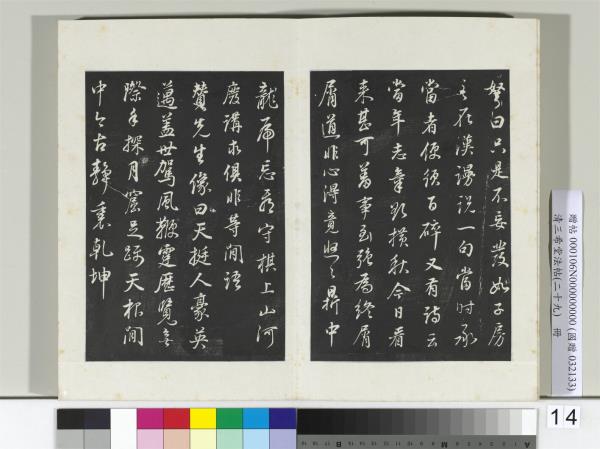 弩曰只是不妄發如子房
之在漢謾說一句當時承
當者便須百碎又有詩云
當年志氣欲橫秋今日看
來甚可羞事到強為終屑
屑道非心得竟悠〻鼎中
龍虎忘看守棋上山河
廢講求俱非等閒語
贊先生像曰天挺人豪英
邁蓋世駕風鞭霆歷覽無
際手探月窟足躡天根閒
中今古靜裏乾坤
贈帖 000106N000000000 (國贈 032133)
清三希堂法帖(二十九) 冊
14